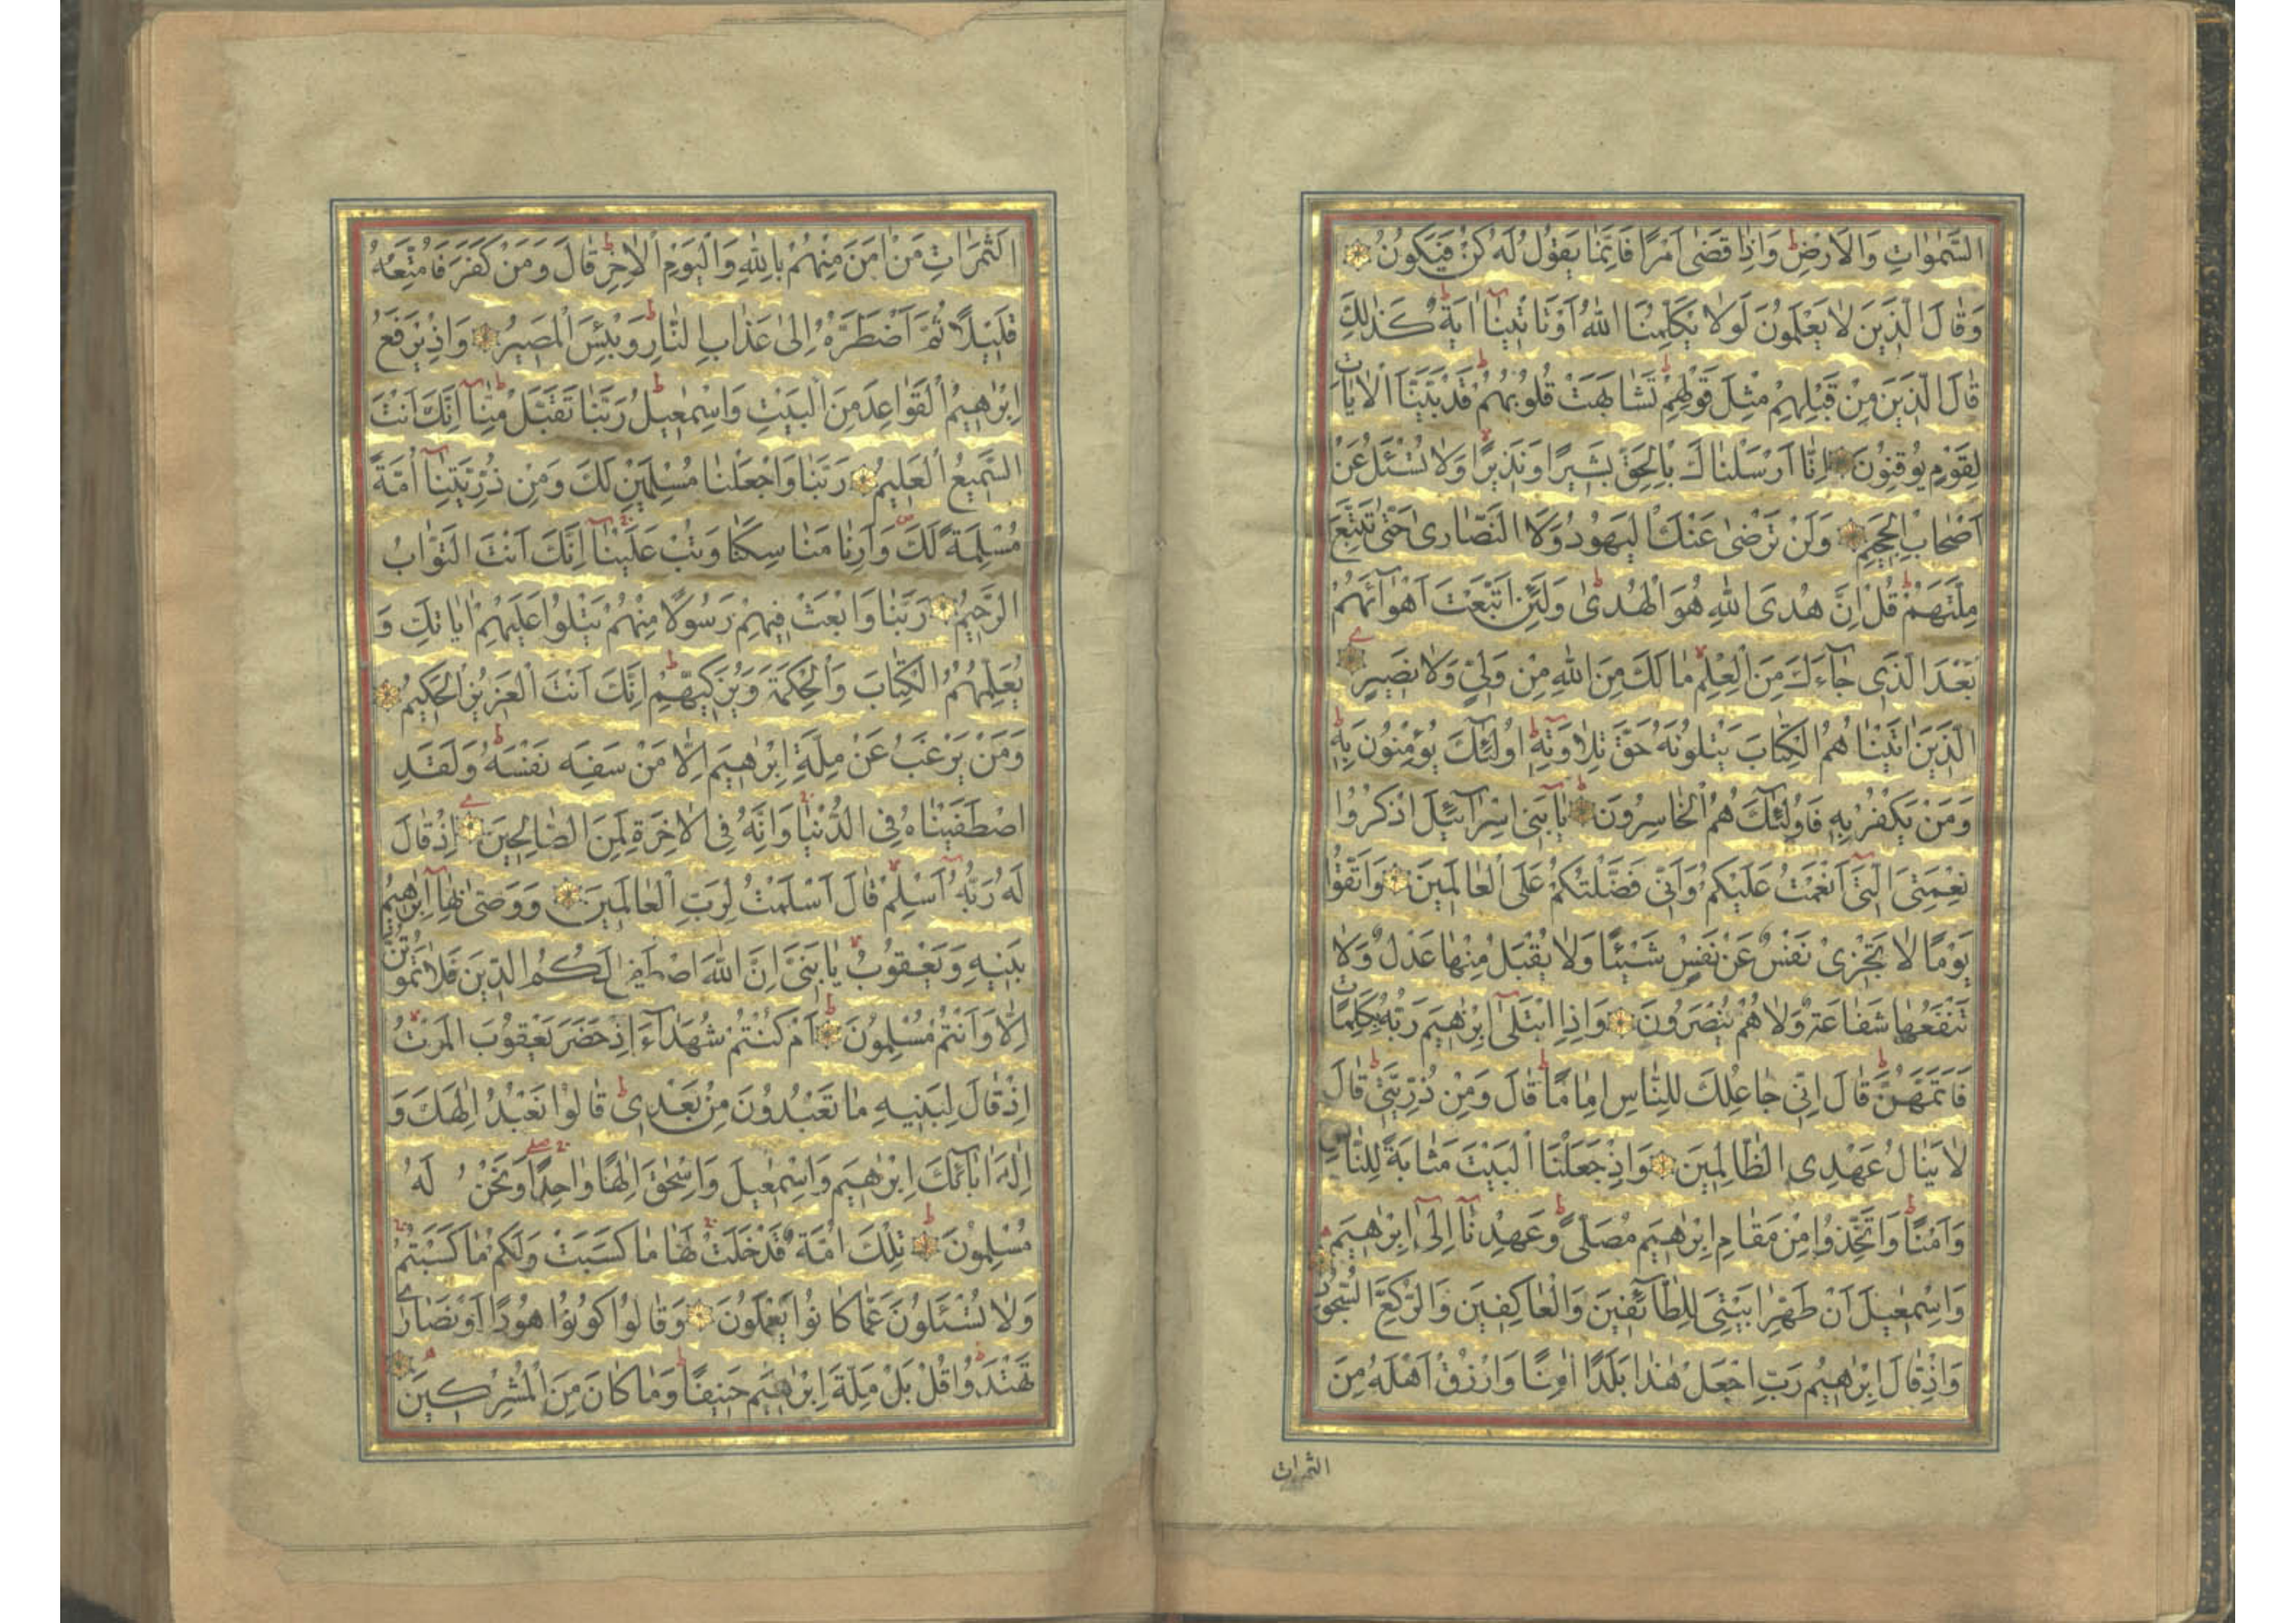 السَّمٰوَاتِ وَالْاَرْضِ ط وَاِذَا قَضٰى اَمْرًا فَاِنَّمَا يَقُولُ لَهُ كُنْ فَيَكُونُ
وَقَالَ الَّذِينَ لَا يَعْلَمُونَ لَوْلَا يُكَلِّمُنَا اللّٰهُ اَوْ تَاْتِينَا اٰيَةٌ ط كَذٰلِكَ
قَالَ الَّذِينَ مِنْ قَبْلِهِمْ مِثْلَ قَوْلِهِمْ ط تَشَابَهَتْ قُلُوبُهُمْ ط قَدْ بَيَّنَّا الْاٰيَاتِ
لِقَوْمٍ يُوقِنُونَ اِنَّا اَرْسَلْنَاكَ بِالْحَقِّ بَشِيرًا وَنَذِيرًا لا وَلَا تُسْئَلُ عَنْ
اَصْحَابِ الْجَحِيمِ وَلَنْ تَرْضٰى عَنْكَ الْيَهُودُ وَلَا النَّصَارٰى حَتّٰى تَتَّبِعَ
مِلَّتَهُمْ ط قُلْ اِنَّ هُدَى اللّٰهِ هُوَ الْهُدٰى ط وَلَئِنِ اتَّبَعْتَ اَهْوَاۤئَهُمْ
بَعْدَ الَّذِى جَاۤءَكَ مِنَ الْعِلْمِ لا مَا لَكَ مِنَ اللّٰهِ مِنْ وَلِيٍّ وَلَا نَصِيرٍ
الَّذِينَ اٰتَيْنَاهُمُ الْكِتَابَ يَتْلُونَهُ حَقَّ تِلَاوَتِهِ ط اُولٰۤئِكَ يُؤْمِنُونَ بِهِ ط
وَمَنْ يَكْفُرْ بِهِ فَاُولٰۤئِكَ هُمُ الْخَاسِرُونَ يَاۤ بَنِى اِسْرَاۤئِيلَ اذْكُرُوا
نِعْمَتِىَ الَّتِىۤ اَنْعَمْتُ عَلَيْكُمْ وَاَنِّى فَضَّلْتُكُمْ عَلَى الْعَالَمِينَ وَاتَّقُوا
يَوْمًا لَا تَجْزِى نَفْسٌ عَنْ نَفْسٍ شَيْئًا وَلَا يُقْبَلُ مِنْهَا عَدْلٌ وَلَا
تَنْفَعُهَا شَفَاعَةٌ وَلَا هُمْ يُنْصَرُونَ وَاِذِ ابْتَلٰۤى اِبْرٰهِيمَ رَبُّهُ بِكَلِمَاتٍ
فَاَتَمَّهُنَّ ط قَالَ اِنِّى جَاعِلُكَ لِلنَّاسِ اِمَامًا ط قَالَ وَمِنْ ذُرِّيَّتِى ط قَالَ
لَا يَنَالُ عَهْدِى الظَّالِمِينَ وَاِذْ جَعَلْنَا الْبَيْتَ مَثَابَةً لِلنَّاسِ
وَاَمْنًا ط وَاتَّخِذُوا مِنْ مَقَامِ اِبْرٰهِيمَ مُصَلًّى ط وَعَهِدْنَاۤ اِلٰۤى اِبْرٰهِيمَ
وَاِسْمٰعِيلَ اَنْ طَهِّرَا بَيْتِىَ لِلطَّاۤئِفِينَ وَالْعَاكِفِينَ وَالرُّكَّعِ السُّجُودِ
وَاِذْ قَالَ اِبْرٰهِيمُ رَبِّ اجْعَلْ هٰذَا بَلَدًا اٰمِنًا وَارْزُقْ اَهْلَهُ مِنَ
الثمرات
الثَّمَرَاتِ مَنْ اٰمَنَ مِنْهُمْ بِاللّٰهِ وَالْيَوْمِ الْاٰخِرِ ط قَالَ وَمَنْ كَفَرَ فَاُمَتِّعُهُ
قَلِيلًا ثُمَّ اَضْطَرُّهُ اِلٰى عَذَابِ النَّارِ ط وَبِئْسَ الْمَصِيرُ وَاِذْ يَرْفَعُ
اِبْرٰهِيمُ الْقَوَاعِدَ مِنَ الْبَيْتِ وَاِسْمٰعِيلُ ط رَبَّنَا تَقَبَّلْ مِنَّاۤ ط اِنَّكَ اَنْتَ
السَّمِيعُ الْعَلِيمُ رَبَّنَا وَاجْعَلْنَا مُسْلِمَيْنِ لَكَ وَمِنْ ذُرِّيَّتِنَاۤ اُمَّةً
مُسْلِمَةً لَكَ وَاَرِنَا مَنَاسِكَنَا وَتُبْ عَلَيْنَاۤ اِنَّكَ اَنْتَ التَّوَّابُ
الرَّحِيمُ رَبَّنَا وَابْعَثْ فِيهِمْ رَسُولًا مِنْهُمْ يَتْلُوا عَلَيْهِمْ اٰيَاتِكَ وَ
يُعَلِّمُهُمُ الْكِتَابَ وَالْحِكْمَةَ وَيُزَكِّيهِمْ ط اِنَّكَ اَنْتَ الْعَزِيزُ الْحَكِيمُ
وَمَنْ يَرْغَبُ عَنْ مِلَّةِ اِبْرٰهِيمَ اِلَّا مَنْ سَفِهَ نَفْسَهُ ط وَلَقَدِ
اصْطَفَيْنَاهُ فِى الدُّنْيَا وَاِنَّهُ فِى الْاٰخِرَةِ لَمِنَ الصَّالِحِينَ اِذْ قَالَ
لَهُ رَبُّهُ اَسْلِمْ لا قَالَ اَسْلَمْتُ لِرَبِّ الْعَالَمِينَ وَوَصّٰى بِهَاۤ اِبْرٰهِيمُ
بَنِيهِ وَيَعْقُوبُ ط يَا بَنِىَّ اِنَّ اللّٰهَ اصْطَفٰى لَكُمُ الدِّينَ فَلَا تَمُوتُنَّ
اِلَّا وَاَنْتُمْ مُسْلِمُونَ اَمْ كُنْتُمْ شُهَدَاۤءَ اِذْ حَضَرَ يَعْقُوبَ الْمَوْتُ لا
اِذْ قَالَ لِبَنِيهِ مَا تَعْبُدُونَ مِنْ بَعْدِى ط قَالُوا نَعْبُدُ اِلٰهَكَ وَ
اِلٰهَ اٰبَاۤئِكَ اِبْرٰهِيمَ وَاِسْمٰعِيلَ وَاِسْحٰقَ اِلٰهًا وَاحِدًا وَنَحْنُ لَهُ
مُسْلِمُونَ تِلْكَ اُمَّةٌ قَدْ خَلَتْ لَهَا مَا كَسَبَتْ وَلَكُمْ مَا كَسَبْتُمْ
وَلَا تُسْئَلُونَ عَمَّا كَانُوا يَعْمَلُونَ وَقَالُوا كُونُوا هُودًا اَوْ نَصَارٰى
تَهْتَدُوا قُلْ بَلْ مِلَّةَ اِبْرٰهِيمَ حَنِيفًا ط وَمَا كَانَ مِنَ الْمُشْرِكِينَ